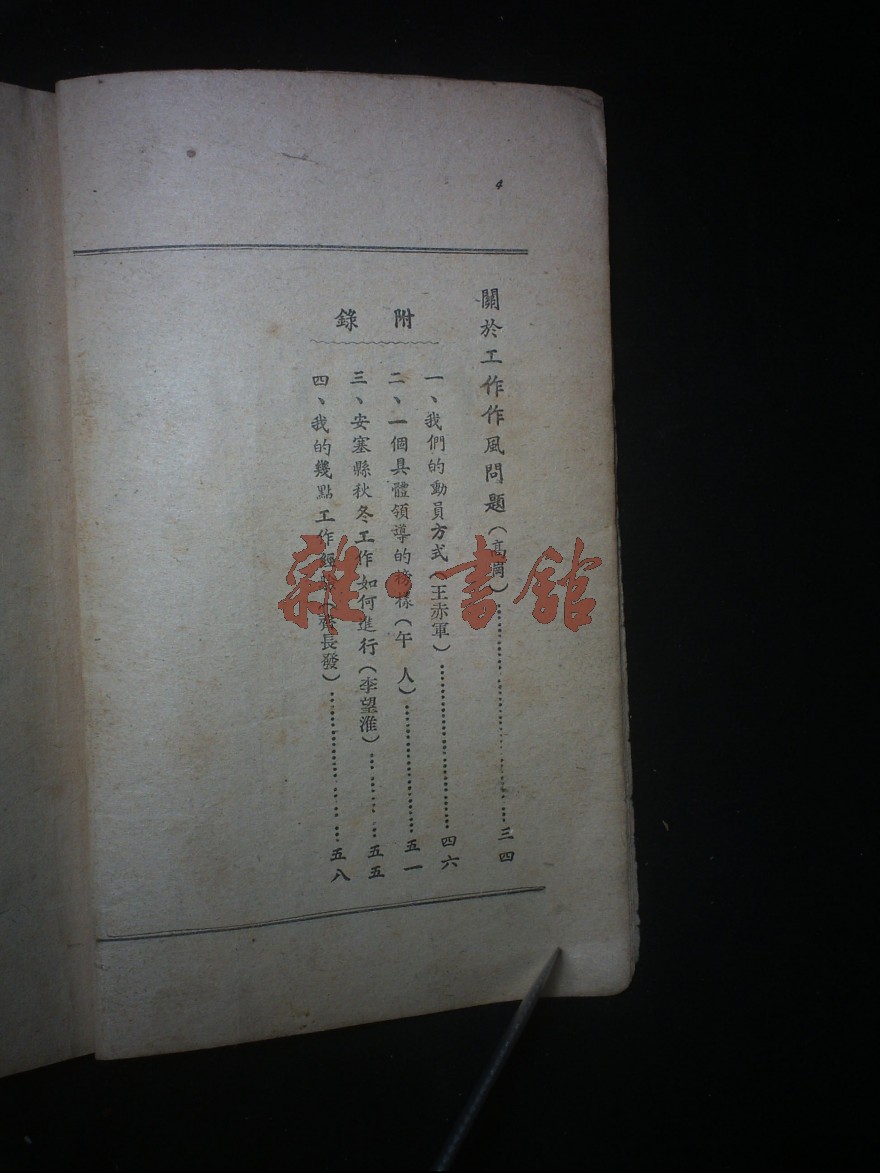 4
關於工作作風問題(高崗)……三四
附錄
一、我們的動員方式(王赤軍)……四六
二、一個具體領導的榜樣(午 人)……五一
三、安塞縣秋冬工作如何進行(李望淮)……五五
四、我的幾點工作經驗(齊長發)……五八
雜·書館